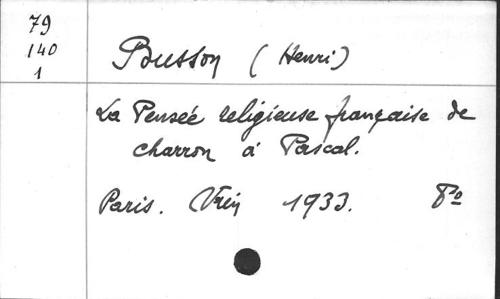 79
140
1
Busson (Henri)
La Pensée religieuse française de
Charron à Pascal.
Paris. Vrin 1933. 8º